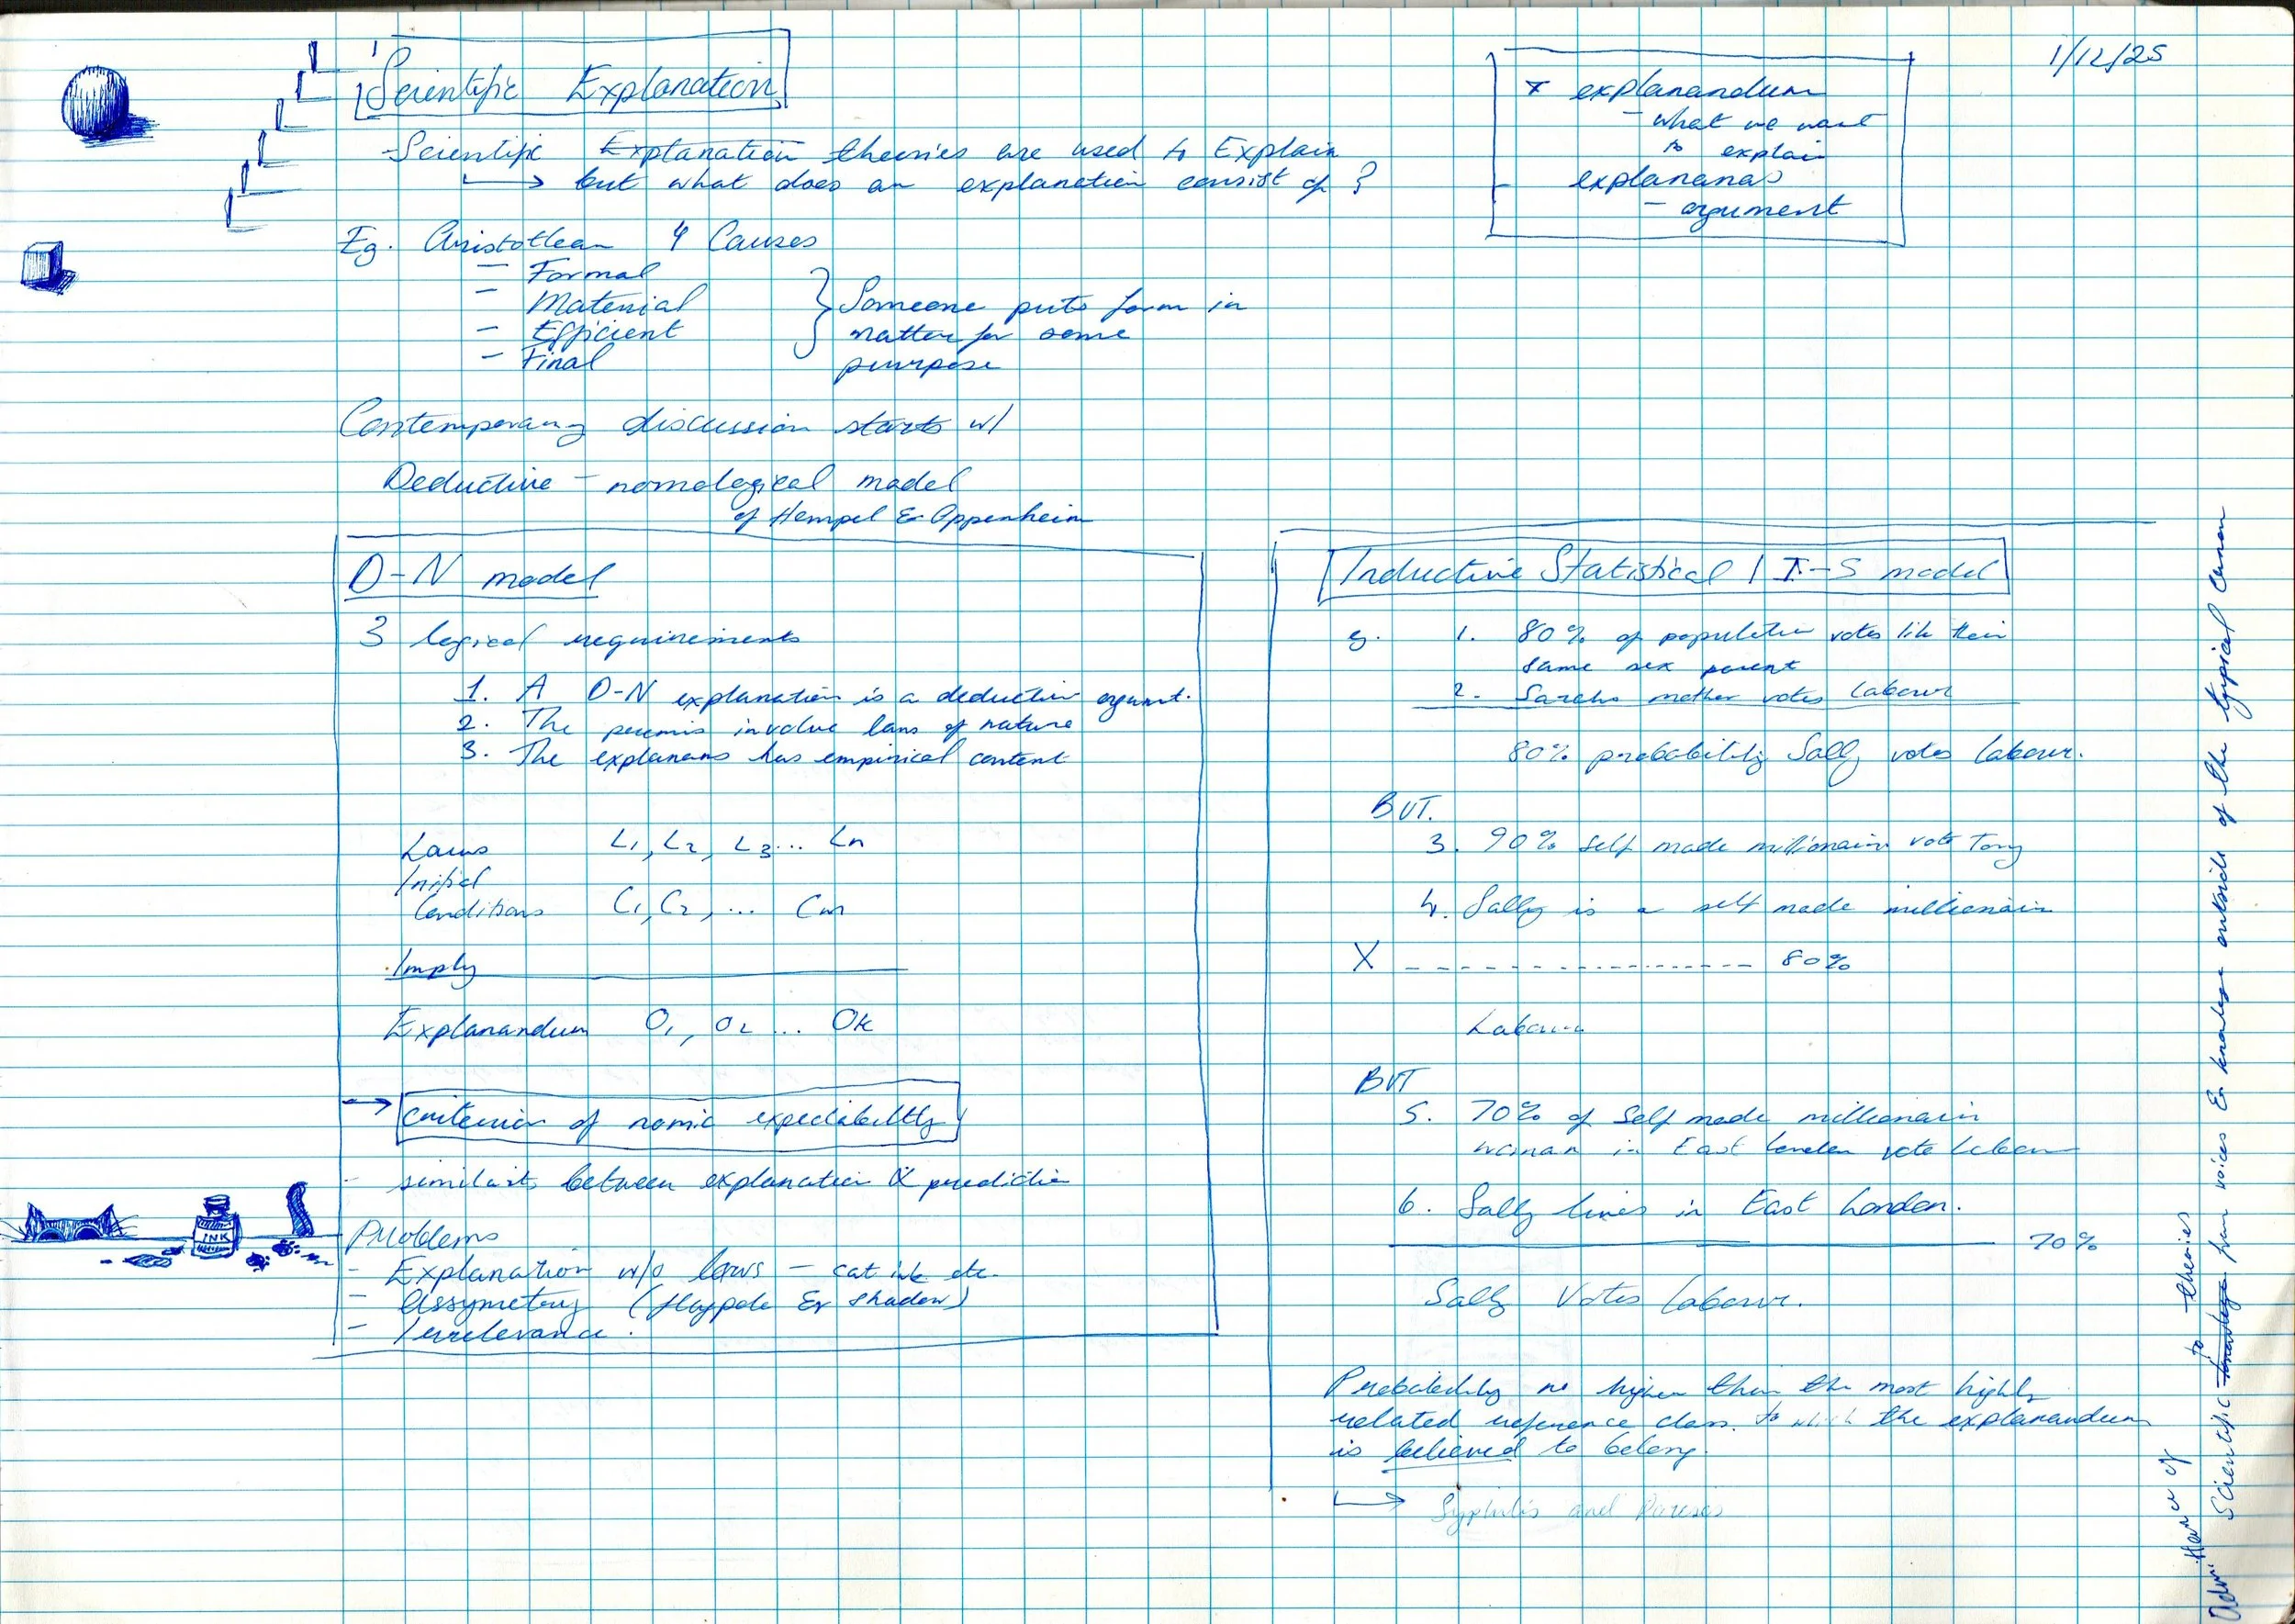 Scientific Explanation
1/12/25
x explanandum
- what we want
to explain
- explananas
- argument
- Scientific Explanation theories are used to Explain
but what does an explanation consist of?
Eg. Aristotlean 4 Causes
- Formal
- Material
- Efficient
- Final
Someone puts form in
matter for some
purpose
Contemporary discussion starts w/
Deductive - nomological model
of Hempel & Oppenheim
D-N model
3 logical requirements
1. A D-N explanation is a deductive argumt.
2. The premis involve laws of nature
3. The explanans has empirical content
Laws L1, L2, L3... Ln
Initial
Conditions C1, C2, ... Cm
Imply
Explanandum O1, O2 ... Ok
criterion of nomic expectability
- similarity between explanation & prediction
INK
Problems
- Explanation w/o laws - cat ink etc.
- Assymetry (flagpole & shadow)
- Irrelevance.
Inductive Statistical / I-S model
eg. 1. 80% of population votes like their
same sex parent
2. Sarahs mother votes Labour
80% probability Sally votes Labour.
BUT.
3. 90% self made millionaire vote Tory
4. Sally is a self made millionair
X ---------------- 80%
Labour
BUT
5. 70% of Self made millionair
woman in East London vote Labour
6. Sally lives in East London.
70%
Sally Votes Labour.
Probability no higher than the most highly
related reference class to which the explanandum
is believed to belong.
Syphilis and Pareses
of
to theories
Scientific knowledge from voices & knowledge outside of the typical canon